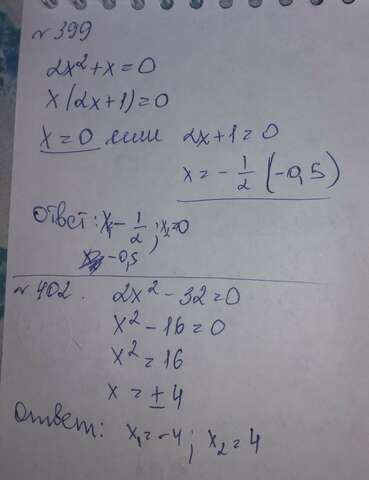 № 399
2x² + x = 0
x(2x+1) = 0
x = 0 или 2x + 1 = 0
x = - 1/2 (-0,5)
Ответ: x₁ - 1/2 ; x₂ = 0
-0,5
№ 402. 2x² - 32 = 0
x² - 16 = 0
x² = 16
x = ± 4
Ответ: x₁ = -4 ; x₂ = 4